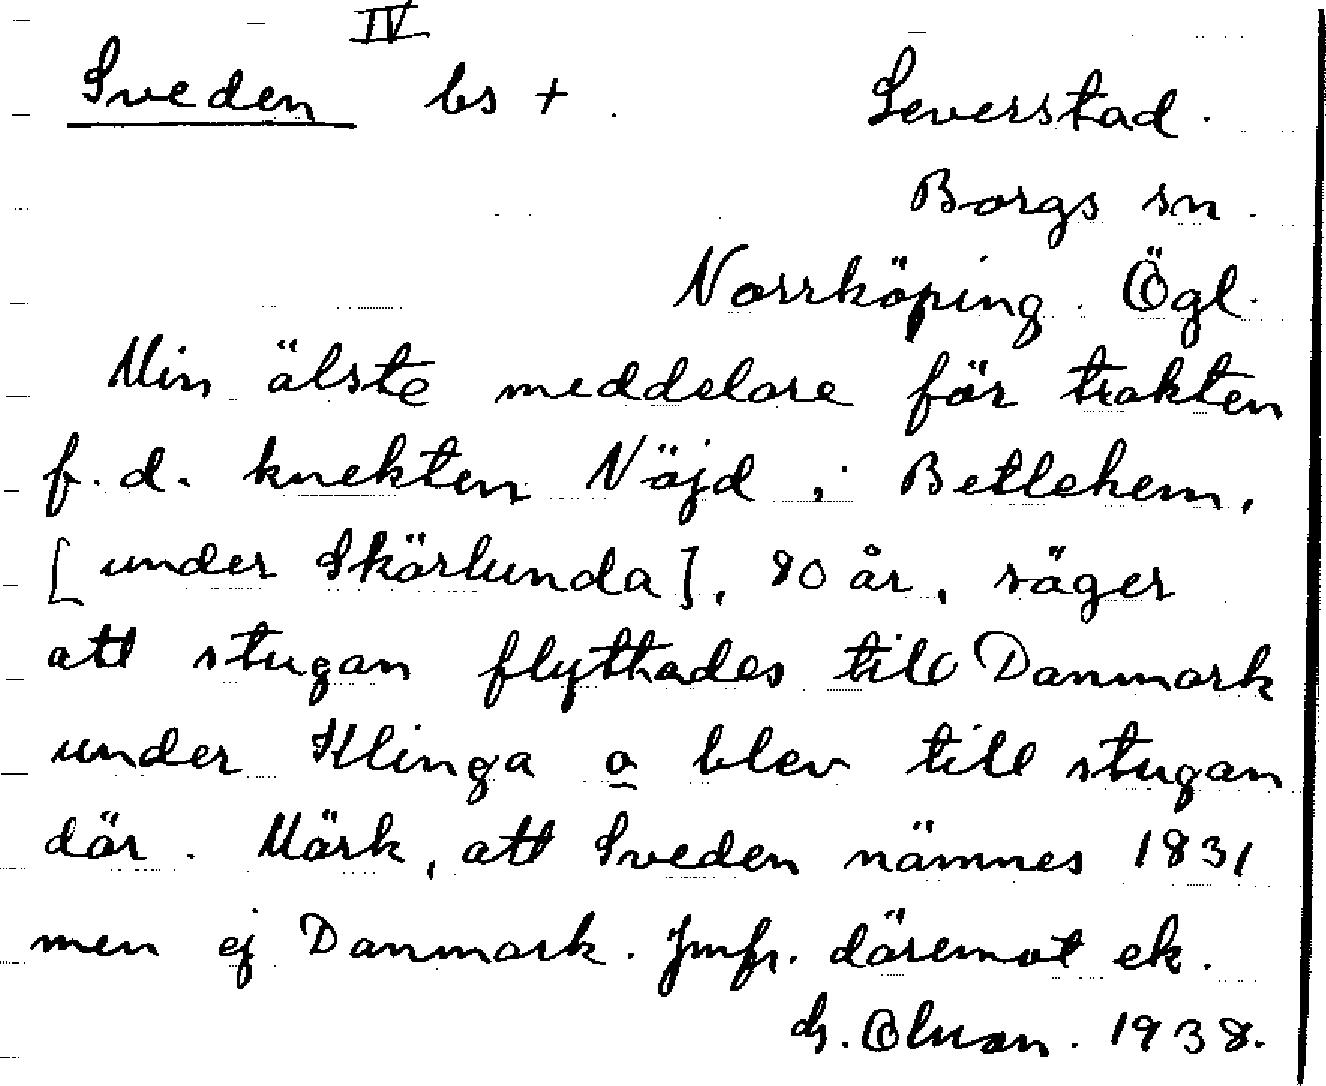 IV
Sveden bs +
Leverstad.
Borgs sn.
Norrköping. Ögl.
Min älste meddelare för trakten
f.d. knekten Nöjd i Betlehem,
[under Skärlunda], 80 år, säger
att stugan flyttades till Danmark
under Klinga o blev till stugan
där. Märk, att Sveden nämnes 1831
men ej Danmark. Jmfr. däremot ek.
1938.